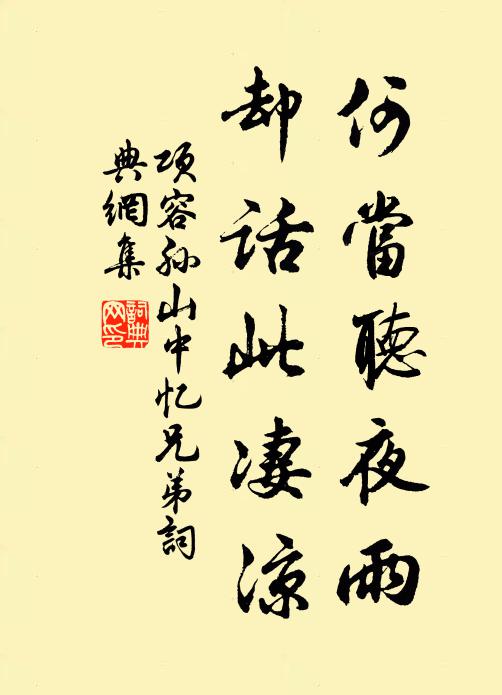 何當聽夜雨
却話此淒涼
項容孙山中忆兄弟詞
典網集
詞典
网印